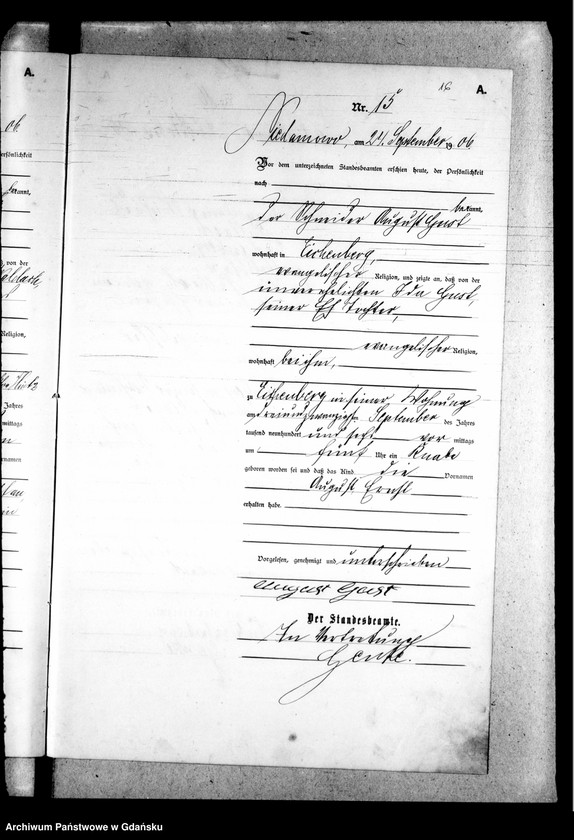 A.
06.
ersönlichkeit
bekannt,
von der
Religion,
Jahres
mittags
ornamen
16
A.
Nr. 15
am 24. September 1906.
Vor dem unterzeichneten Standesbeamten erschien heute, der Persönlichkeit
nach
bekannt,
der Schneider August Gust
wohnhaft in Eichenberg,
evangelischer Religion, und zeigte an, daß von der
unverehelichten Ida Gust,
seiner Tochter,
evangelischer Religion,
wohnhaft bei ihm,
zu Eichenberg in seiner Wohnung
am dreiundzwanzigsten September des Jahres
tausend neunhundert und sechs vor mittags
um fünf Uhr ein Knabe
geboren worden sei und daß das Kind die Vornamen
August Ernst
erhalten habe.
Vorgelesen, genehmigt und unterschrieben
August Gust
Der Standesbeamte.
In Vertretung
Archiwum Państwowe w Gdańsku